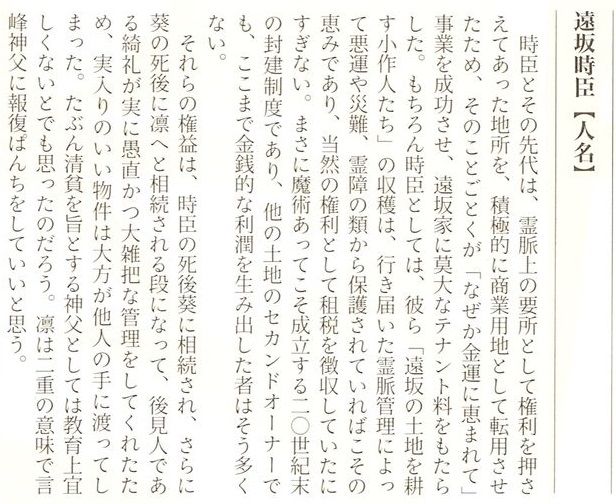 遠坂時臣【人名】
時臣とその先代は、霊脈上の要所として権利を押さ
えてあった地所を、積極的に商業用地として転用させ
たため、そのことごとくが「なぜか金運に恵まれて」
事業を成功させ、遠坂家に莫大なテナント料をもたら
した。もちろん時臣としては、彼ら「遠坂の土地を耕
す小作人たち」の収穫は、行き届いた霊脈管理によっ
て悪運や災難、霊障の類から保護されていればこその
恵みであり、当然の権利として租税を徴収していたに
すぎない。まさに魔術あってこそ成立する二〇世紀末
の封建制度であり、他の土地のセカンドオーナーで
も、ここまで金銭的な利潤を生み出した者はそう多く
ない。
それらの権益は、時臣の死後葵に相続され、さらに
葵の死後に凛へと相続される段になって、後見人であ
る綺礼が実に愚直かつ大雑把な管理をしてくれたた
め、実入りのいい物件は大方が他人の手に渡ってし
まった。たぶん清貧を旨とする神父としては教育上宜
しくないとでも思ったのだろう。凛は二重の意味で言
峰神父に報復ぱんちをしていいと思う。